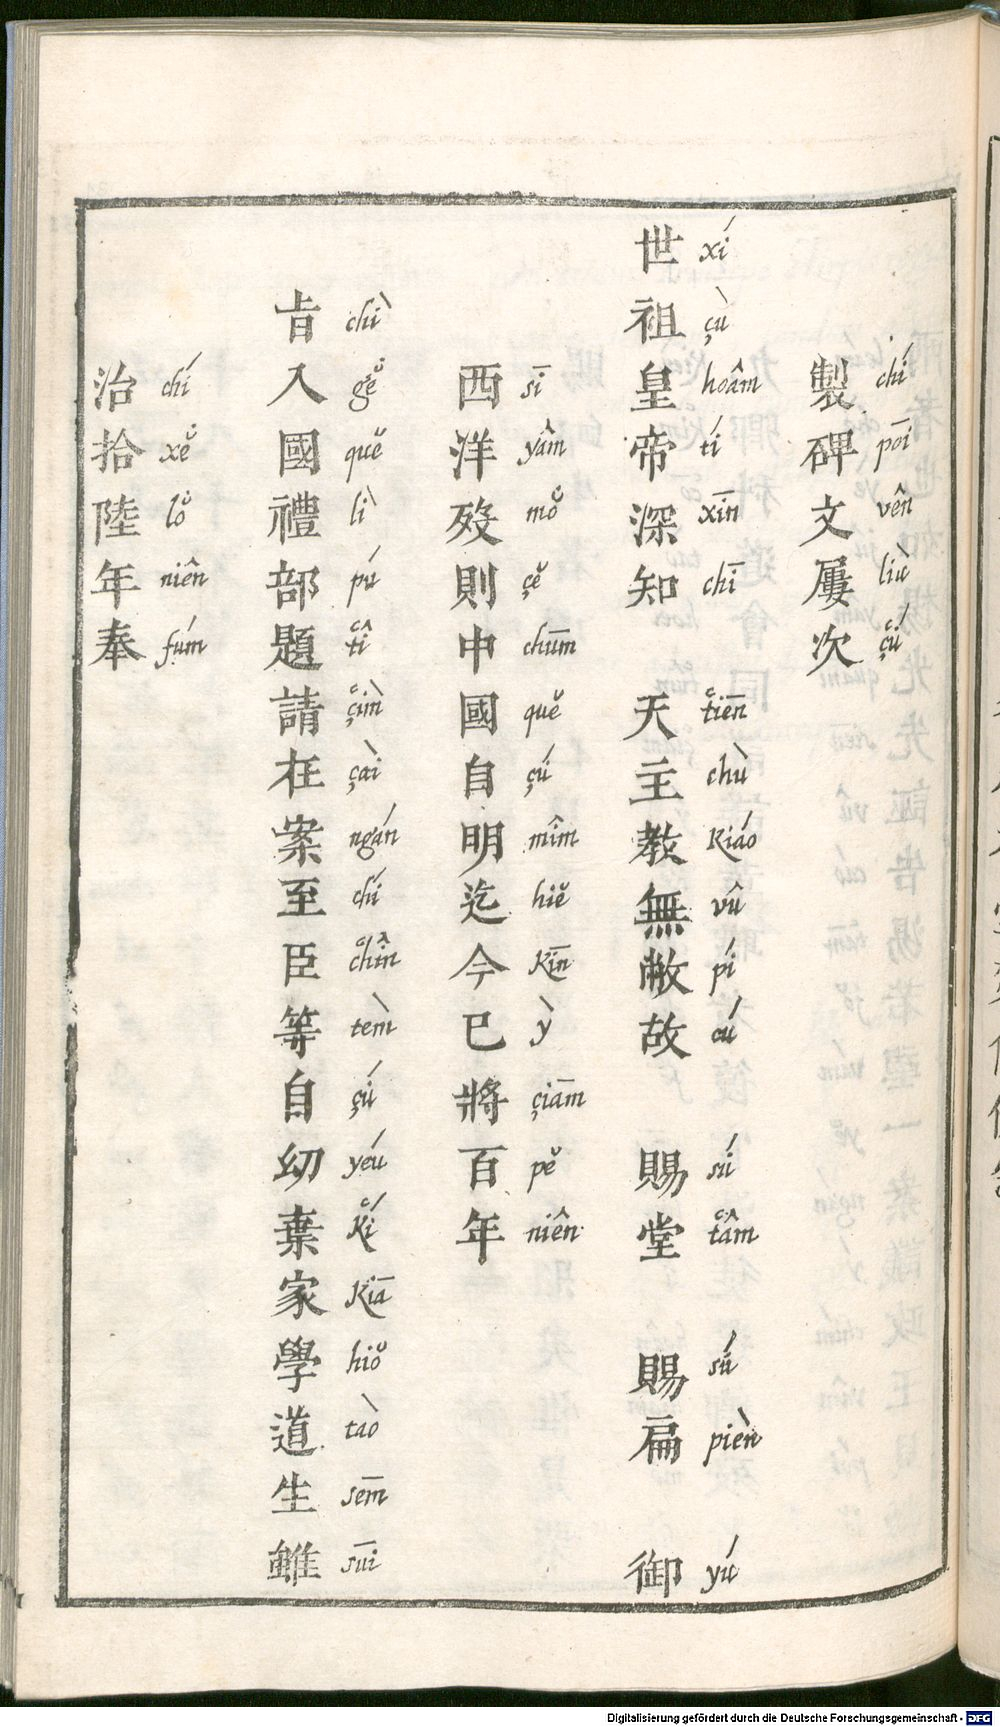 治拾陸年奉
chí xĕ̇ lŏ̇ niên fúm
旨入國禮部題請在案至臣等自幼棄家學道生雖
chì gĕ̇ quĕ lì pú t῾î ç῾ìm çài ngán chí ch῾în tèm çú yéu k῾í Kiā hiŏ tào sēm sūi
西洋歿則中國自明迄今已將百年
sī yâm mŏ̇ çĕ chūm quĕ çú mîm hiĕ Kīn ỳ çiām pĕ niên
世祖皇帝深知 天主教無敝故 賜堂 賜扁 御
xí çù hoâm tí xīn chī t῾iēn chù Kiáo vû pí cú sú t῾âm sú pièn yú
製碑文屢次
chí poī vên liù ç῾ú
Digitalisierung gefördert durch die Deutsche Forschungsgemeinschaft - DFG